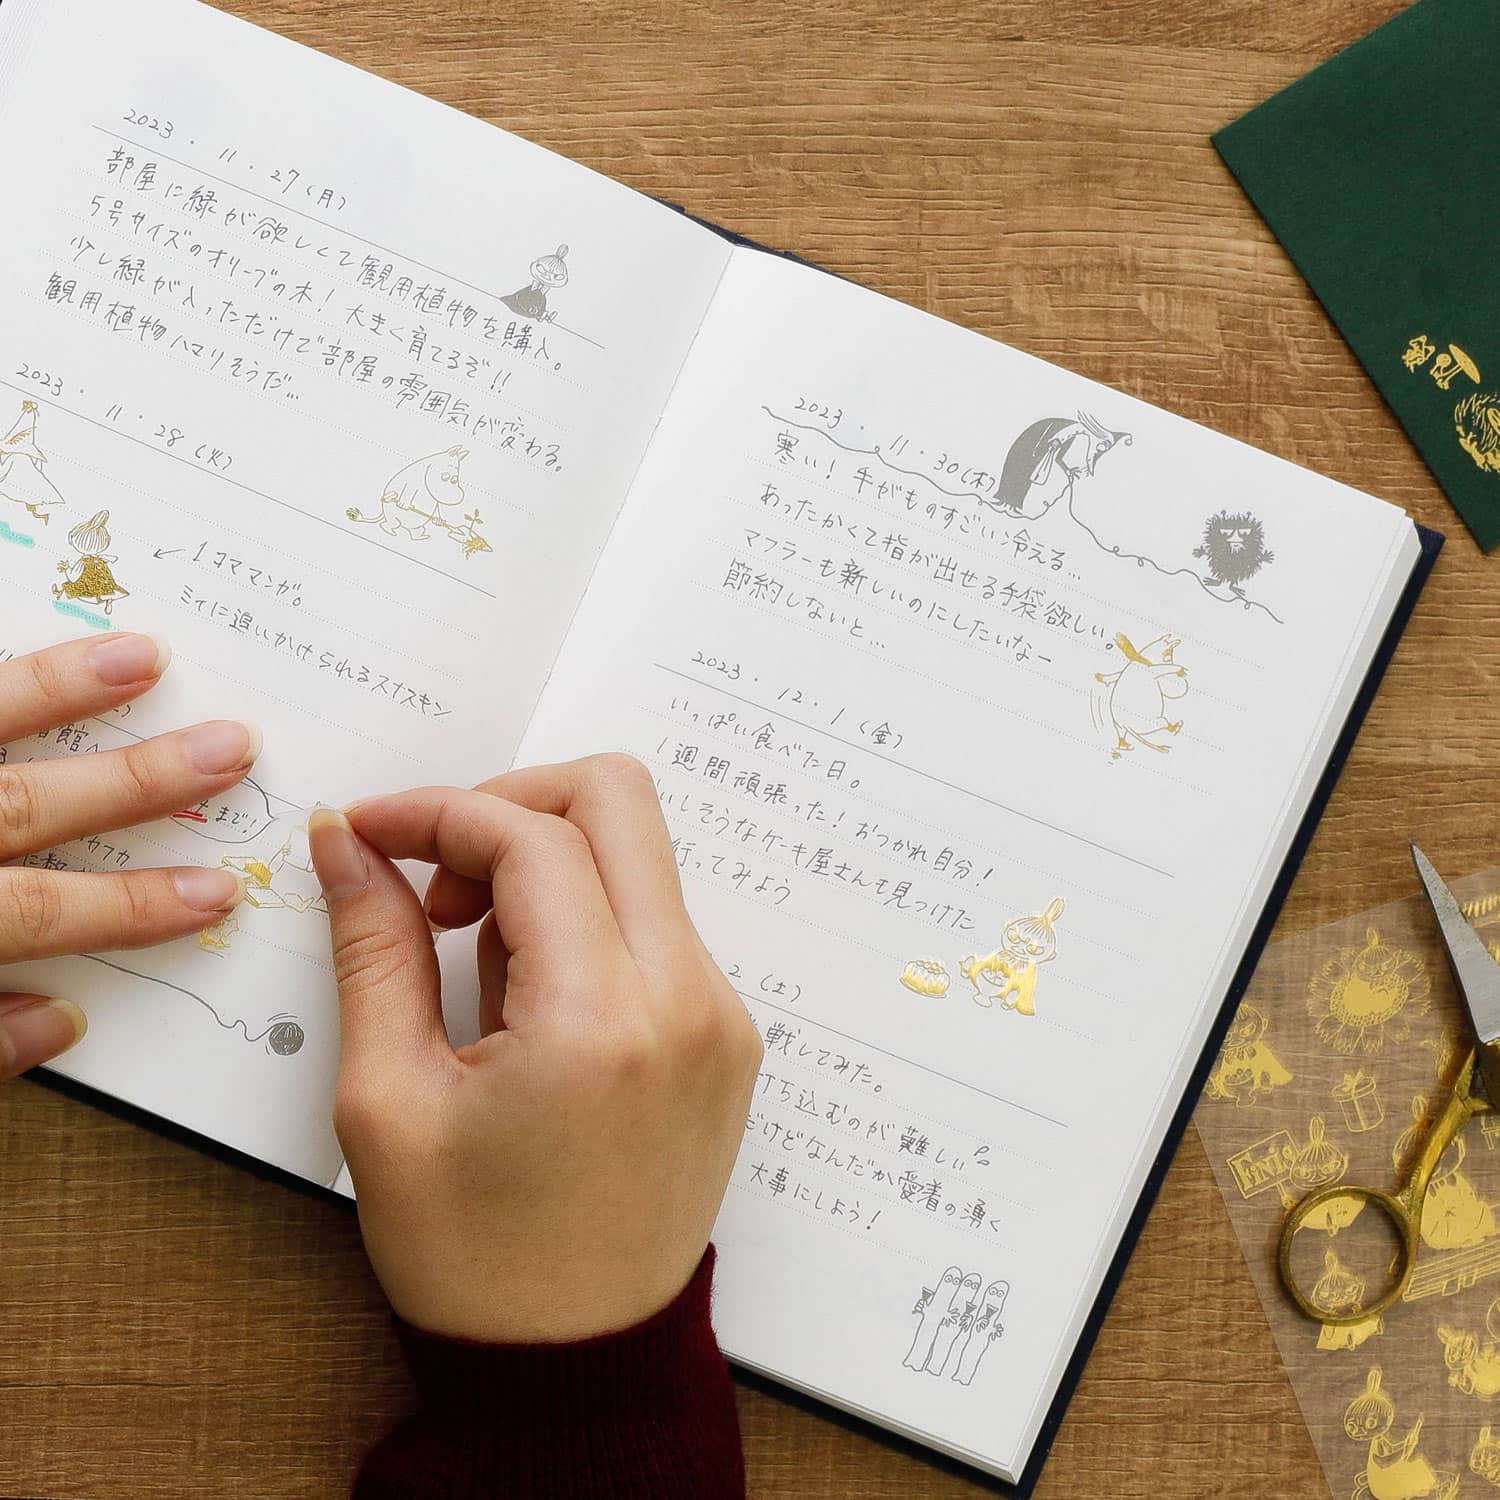 2023・11・27(月)
部屋に緑が欲しくて観用植物を購入。
5号サイズのオリーブの木！大きく育てるぞ!!
少し緑が入っただけで部屋の雰囲気が変わる。
観用植物ハマりそうだ…
2023・11・28(火)
↙1コママンガ。
ミイに追いかけられるスナスキン
館へ
土まで！
カフカ
に
2023・11・30(木)
寒い！手がものすごい冷える…
あったかくて指が出せる手袋欲しい。
マフラーも新しいのにしたいなー
節約しないと…
2023・12・1(金)
いっぱい食べた日。
1週間頑張った！おつかれ自分！
いしそうなケーキ屋さんも見つけた
行ってみよう
2(土)
戦してみた。
打ち込むのが難しい。
だけどなんだか愛着の湧く
大事にしよう！
FiNiS